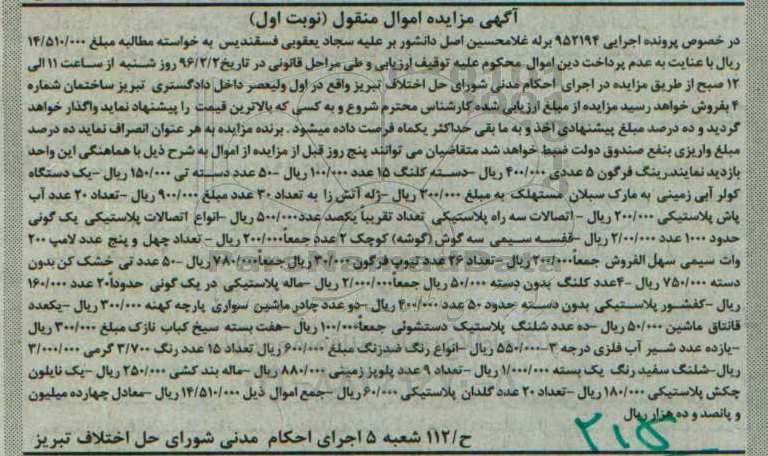 آگهی مزایده اموال منقول (نوبت اول)
در خصوص پرونده اجرایی ۹۵۲۱۹۴ برله غلامحسین اصل دانشور بر علیه سجاد یعقوبی فسقندیس به خواسته مطالبه مبلغ ۱۴/۵۱۰/۰۰۰
ریال با عنایت به عدم پرداخت دین اموال محکوم علیه توقیف ارزیابی و طی مراحل قانونی در تاریخ ۹۶/۲/۲ روز شنبه از ساعت ۱۱ الی
۱۲ صبح از طریق مزایده در اجرای احکام مدنی شورای حل اختلاف تبریز واقع در اول ولیعصر داخل دادگستری تبریز ساختمان شماره
۴ بفروش خواهد رسید مزایده از مبلغ ارزیابی شده کارشناس محترم شروع و به کسی که بالاترین قیمت را پیشنهاد نماید واگذار خواهد
گردید و ده درصد مبلغ پیشنهادی اخذ و به ما بقی حداکثر یکماه فرصت داده میشود . برنده مزایده به هر عنوان انصراف نماید ده درصد
مبلغ واریزی بنفع صندوق دولت ضبط خواهد شد متقاضیان می توانند پنج روز قبل از مزایده از اموال به شرح ذیل با هماهنگی این واحد
بازدید نمایند.رینگ فرگون ۵ عددی ۴۰۰/۰۰۰ ریال -دسته کلنگ ۱۵ عدد ۱۰۰/۰۰۰ ریال -۵۰ عدد دسته تی ۱۵۰/۰۰۰ ریال -یک دستگاه
کولر آبی زمینی به مارک سبلان مستهلک به مبلغ ۳۰۰/۰۰۰ ریال -ژله آتش زا به تعداد ۳۰ عدد مبلغ ۹۰۰/۰۰۰ ریال -تعداد ۲۰ عدد آب
پاش پلاستیکی ۲۰۰/۰۰۰ ریال - اتصالات سه راه پلاستیکی تعداد تقریباً یکصد عدد ۵۰۰/۰۰۰ ریال -انواع اتصالات پلاستیکی یک گونی
حدود ۱۰۰۰ عدد ۲/۰۰۰/۰۰۰ ریال -قفسه سیمی سه گوش (گوشه) کوچک ۲ عدد جمعاً ۲۰۰/۰۰۰ ریال - تعداد چهل و پنج عدد لامپ ۲۰۰
وات سیمی سهل الفروش جمعاً ۲۰۰/۰۰۰ ریال -تعداد ۲۶ عدد تیوپ فرگون ۳۰/۰۰۰ ریال جمعاً ۷۸۰/۰۰۰ ریال -۵۰ عدد تی خشک کن بدون
دسته ۷۵۰/۰۰۰ ریال -۴۰عدد کلنگ بدون دسته ۵۰/۰۰۰ ریال جمعاً ۲/۰۰۰/۰۰۰ ریال -ماله پلاستیکی در یک گونی حدوداً ۲۰ عدد ۱۶۰/۰۰۰
ریال -کفشور پلاستیکی بدون دسته حدود ۵۰ عدد ۴۰۰/۰۰۰ ریال -دو عدد چادر ماشین سواری پارچه کهنه ۳۰۰/۰۰۰ ریال -یکعدد
قانتاق ماشین ۵۰/۰۰۰ ریال -ده عدد شلنگ پلاستیک دستشوئی جمعاً ۱۰۰/۰۰۰ ریال -هفت بسته سیخ کباب نازک مبلغ ۳۰۰/۰۰۰ ریال
-یازده عدد شیر آب فلزی درجه ۳-۵۵۰/۰۰۰ ریال -انواع رنگ ضدزنگ مبلغ ۶۰۰/۰۰۰ ریال تعداد ۱۵ عدد رنگ ۳/۷۰۰ گرمی ۳/۰۰۰/۰۰۰
ریال -شلنگ سفید رنگ یک بسته ۱/۰۰۰/۰۰۰ ریال -تعداد ۹ عدد پلویز زمینی ۸۸۰/۰۰۰ ریال -ماله بند کشی ۲۵۰/۰۰۰ ریال -یک نایلون
چکش پلاستیکی ۱۸۰/۰۰۰ ریال -تعداد ۲۰ عدد گلدان پلاستیکی ۶۰/۰۰۰ ریال -جمع اموال ذیل ۱۴/۵۱۰/۰۰۰ ریال -معادل چهارده میلیون
و پانصد و ده هزار ریال
ح/۱۱۲ شعبه ۵ اجرای احکام مدنی شورای حل اختلاف تبریز